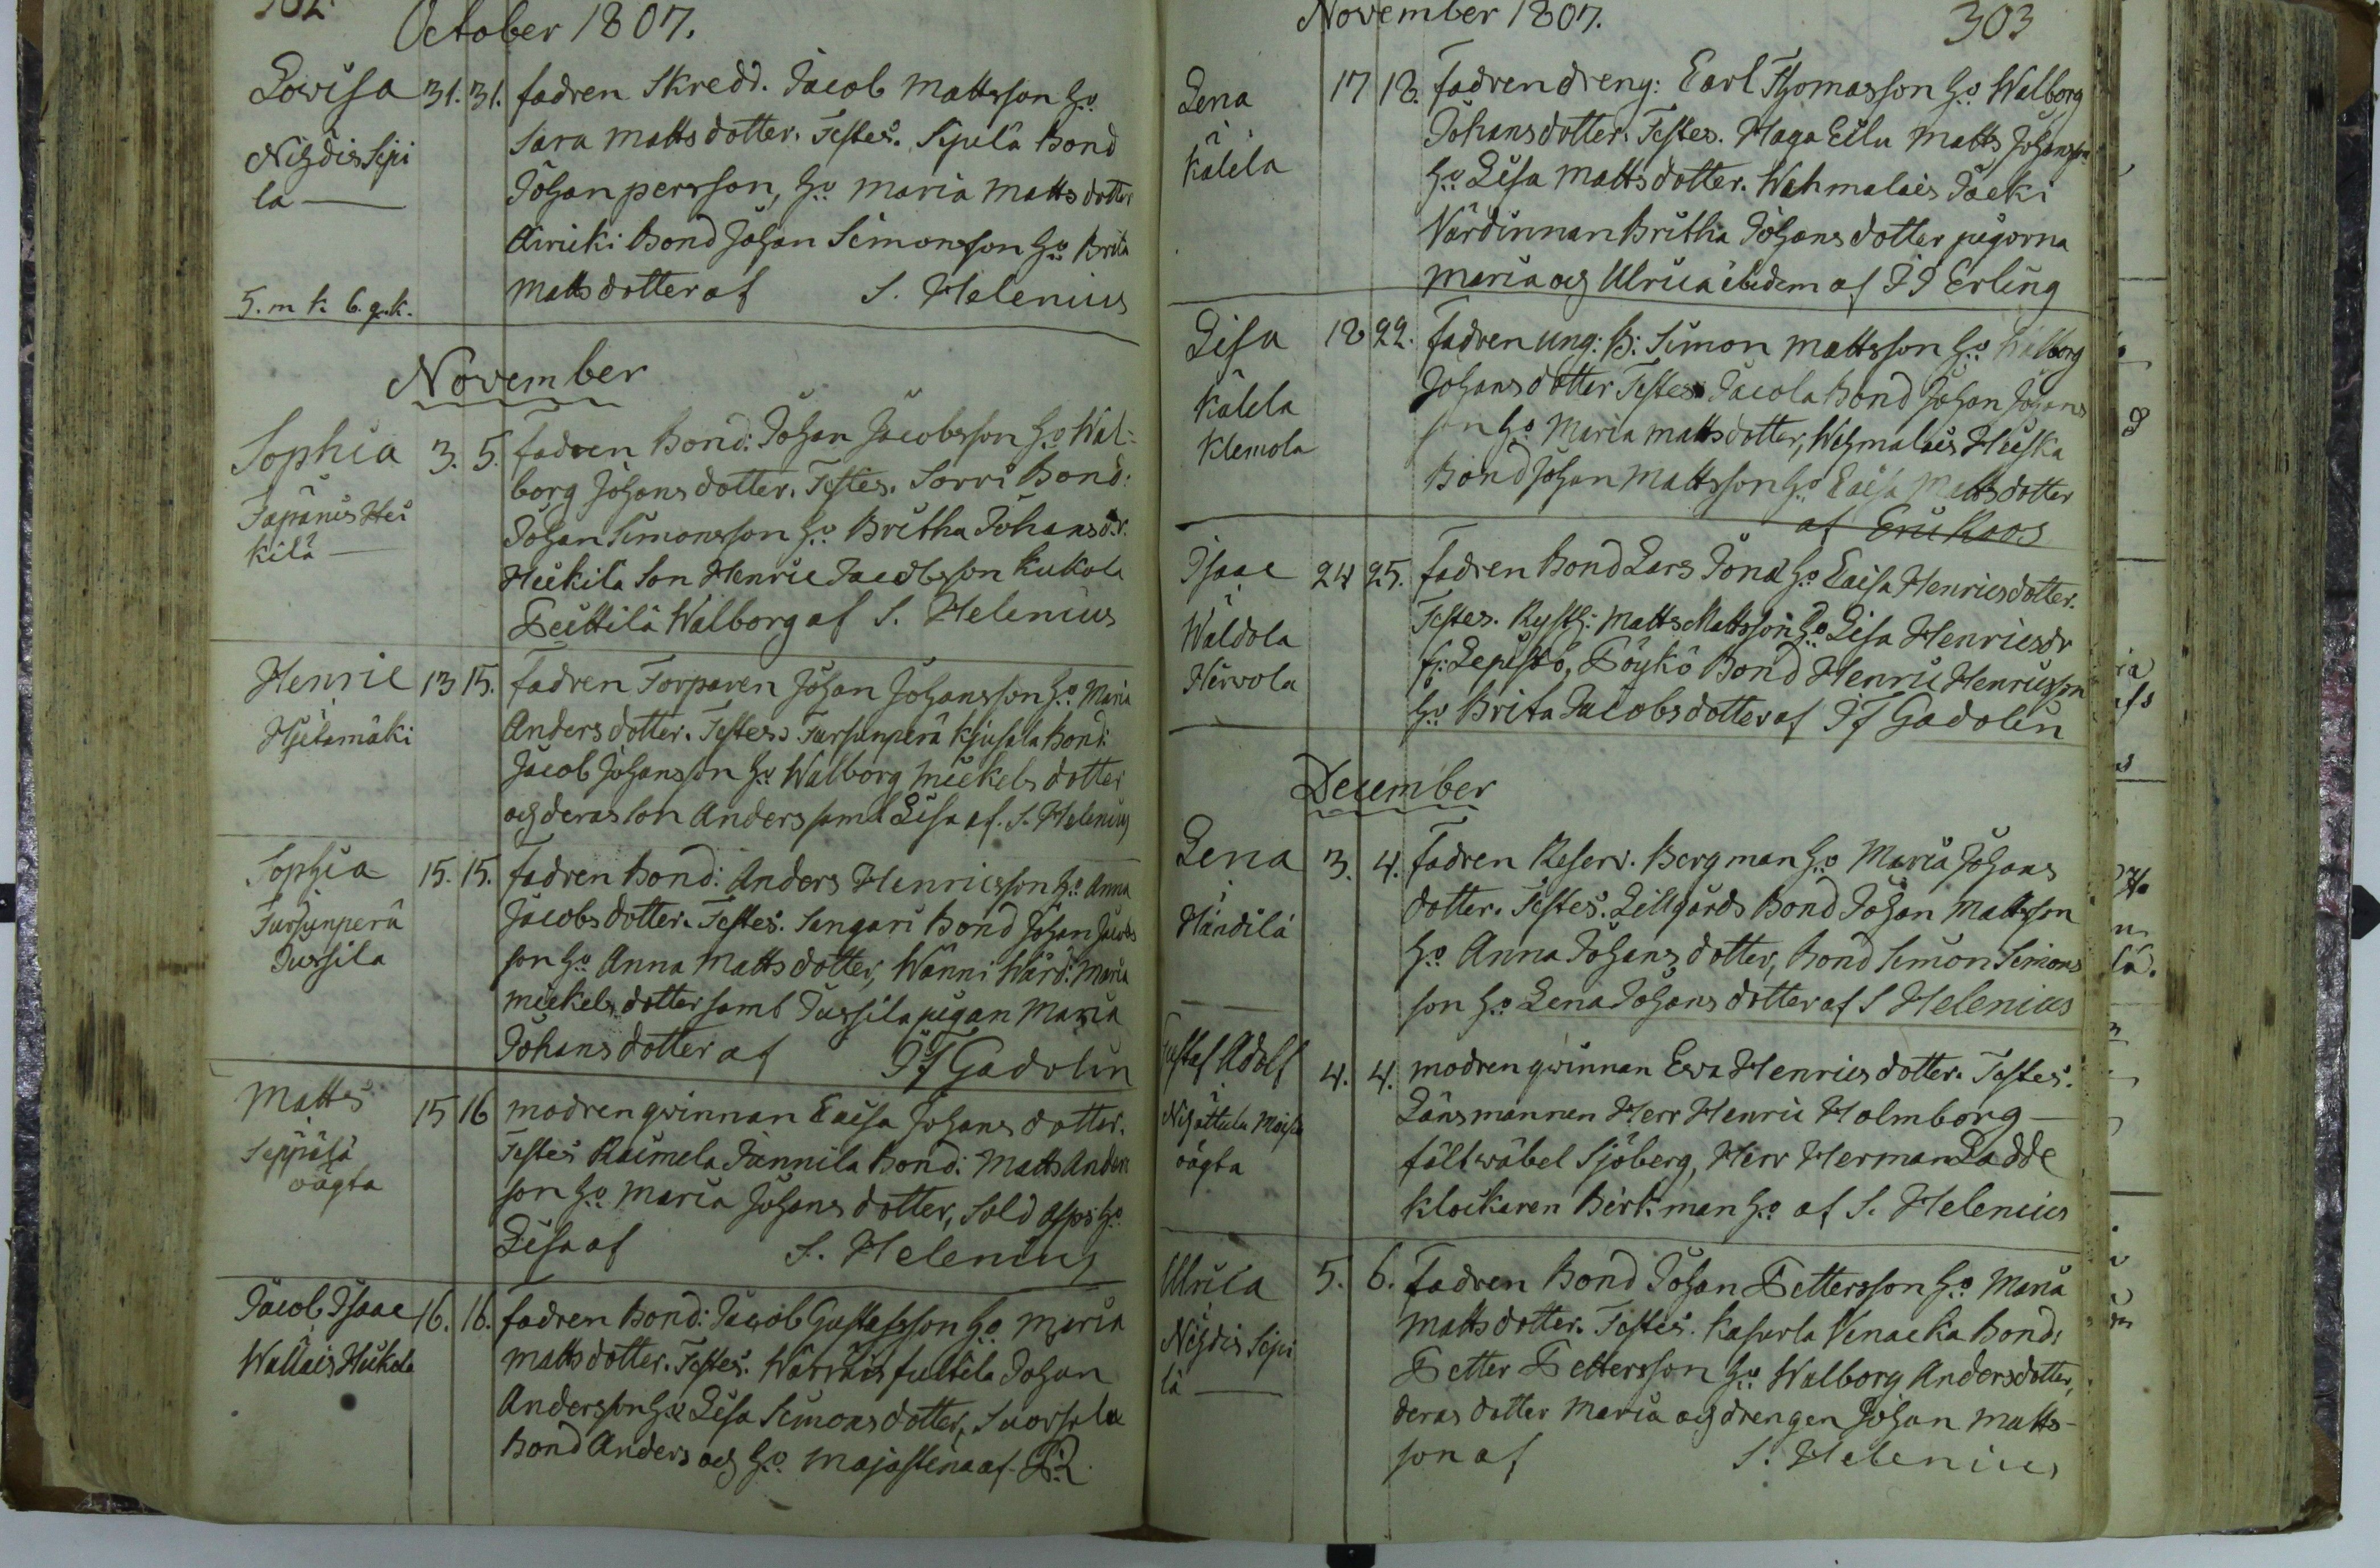 302.
October 1807.
Lovisa 31. 31. fadren Skredd. Jacob Mattsson h:o
Sara Matts dotter. Testes. Sipilä Bond
Nihdis Sipi
la — Johan persson, h:o Maria Matts dotter
Airicki Bond Johan Simonsson h:o Brita
5. m k. 6. q. k. Matts dotter af S. Helenius
November
Sophia 3. 5. fadren Bond: Johan Jacobsson h:o Wal-
borg Johans dotter. Testes. Sorri Bond:
Japanis Hei
kilä — Johan Simonsson h:o Britha Johansdr.
Heikilä Son Henric Jacobsson Kukola
Peittilä Walborg af S. Helenius
Henric 13 15. fadren Torparen Johan Johansson h:o Maria
Hjetamäki Anders dotter. Testes. Tursunperä Kjusala Bond:
Jacob Johansson h:o Walborg Mickels dotter
och deras son Anders samt Lisa af. S. Helenius
Sophia 15. 15. fadren Bond: Anders Henricsson h:o Anna
Tursunperä Jacobs dotter. Testes. Sangari Bond Johan Jacobs
Jussila son h:o Anna Matts dotter, Wänni Wärd: Maria
Mickels dotter samt Jussila pigan Maria
Johans dotter af J F Gadolin
Matts 15 16 modren qwinnan Caisa Johans dotter.
Seppälä Testes Raimela Jannila Bond: Matts Anders
oägta son h:o Maria Johans dotter, Sold Asp: h:o
Lisa af S. Helenius
Jacob Isaac 16. 16. fadren Bond: Jacob Gustafsson h:o Maria
Wallais Heikola Matts dotter. Testes. Warvais Juttila Johan
Andersson h:o Lisa Simons dotter, Suorsala
Bond Anders och h:o Majastina af
November 1807. 303
Lena 17 18. fadren dreng: Carl Thomasson h:o Walborg
Johans dotter. Testes. Haga Eilu Matts Johansson
Kälela h:o Lisa Matts dotter. Wehmalais Jacki
Värdinnan Britha Johans dotter pigorna
Maria och Ulrica ibidem af J J Erling
Lisa 18 22. fadren ung: B: Simon Mattsson h:o Walborg
Kälela Johans dotter Testes Jacola Bond Johan Johans
Klemola son h:o Maria Matts dotter, Wehmalais Heiska
Bond Johan Mattsson h:o Caisa Matts dotter
af Eric Roos
Isaac 24 25. fadren Bond Lars Jona h:o Caisa Henricsdotter.
Wäldola Testes. Rysth: Matts Mattsson h:o Lisa Henricsdr
Hervola fr: Lepistö, Pöykö Bond Henric Henricsson
h:o Brita Jacobs dotter af J F Gadolin
December
Lena 3. 4. fadren Reserv. Bergman h:o Maria Johans
dotter. Testes. Lillgårds Bond Johan Mattsson
Händilä h:o Anna Johans dotter, Bond Simon Simons
son h:o Lena Johans dotter af S Helenius
Gustaf Adolf 4. 4. modren qwinnan Ewa Henrics dotter. Testes.
Länsmannen Herr Henric Holmborg —
oägta fältwäbel Sjöberg, Herr Herman Ladde
klockaren Birkman h:o af S. Helenius
Ulrica 5. 6. fadren Bond Johan Pettersson h:o Maria
Nihdis Sipi Matts dotter. Testes. Kasurla Venaeka Bond:
lä — Petter Pettersson h:o Walborg Andersdotter,
deras dotter Maria och drengen Johan Matts-
son af S. Helenius